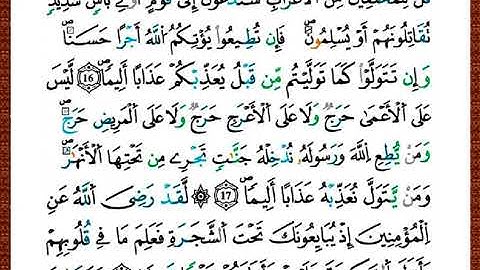 قُل لِّلْمُخَلَّفِينَ مِنَ اَلْأَعْرَابِ سَتُدْعَوْنَ إِلَىٰ قَوْمٍ أُوْلِے بَأْسٍ شَدِيدٍ
تُقَٰتِلُونَهُمْ أَوْ يُسْلِمُونَۖ فَإِن تُطِيعُوا۟ يُؤْتِكُمُ اُللَّهُ أَجْرًا حَسَنًاۖ
وَإِن تَتَوَلَّوْا۟ كَمَا تَوَلَّيْتُم مِّن قَبْلُ يُعَذِّبْكُمْ عَذَابًا أَلِيمًاۖ 16 لَّيْسَ
عَلَى اَلْأَعْمَىٰ حَرَجٌ وَلَا عَلَى اَلْأَعْرَجِ حَرَجٌ وَلَا عَلَى اَلْمَرِيضِ حَرَجٌۖ
وَمَنْ يُّطِعِ اِللَّهَ وَرَسُولَهُۥ نُدْخِلْهُ جَنَّٰتٍ تَجْرِے مِن تَحْتِهَا اَلْأَنْهَٰرُۖ
وَمَنْ يَّتَوَلَّ نُعَذِّبْهُ عَذَابًا أَلِيمًاۖ 17 ۞ لَّقَدْ رَضِيَ اَللَّهُ عَنِ
اِلْمُؤْمِنِينَ إِذْ يُبَايِعُونَكَ تَحْتَ اَلشَّجَرَةِ فَعَلِمَ مَا فِے قُلُوبِهِمْ